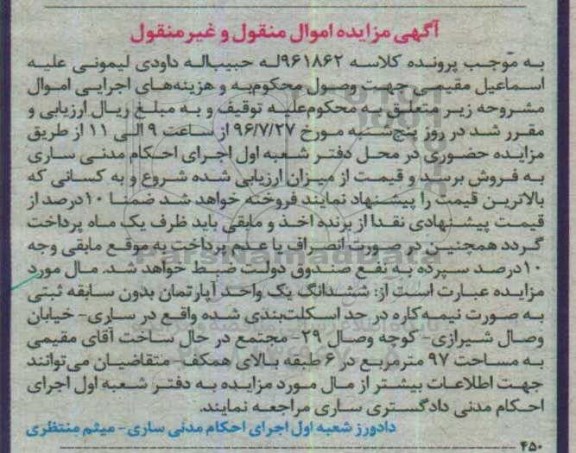 آگهی مزایده اموال منقول و غیرمنقول
به موجب پرونده کلاسه ۹۶۱۸۶۲له حبیب‌اله داودی لیمونی علیه
اسماعیل مقیمی جهت وصول محکوم‌به و هزینه‌های اجرایی اموال
مشروحه زیر متعلق به محکوم‌علیه توقیف و به مبلغ ریال ارزیابی و
مقرر شد در روز پنج‌شنبه مورخ ۹۶/۷/۲۷ از ساعت ۹ الی ۱۱ از طریق
مزایده حضوری در محل دفتر شعبه اول اجرای احکام مدنی ساری
به فروش برسد و قیمت از میزان ارزیابی شده شروع و به کسانی که
بالاترین قیمت را پیشنهاد نمایند فروخته خواهد شد ضمنا ۱۰درصد از
قیمت پیشنهادی نقدا از برنده اخذ و مابقی باید ظرف یک ماه پرداخت
گردد همچنین در صورت انصراف یا عدم پرداخت به موقع مابقی وجه
۱۰درصد سپرده به نفع صندوق دولت ضبط خواهد شد. مال مورد
مزایده عبارت است از: ششدانگ یک واحد آپارتمان بدون سابقه ثبتی
به صورت نیمه‌کاره در حد اسکلت‌بندی شده واقع در ساری- خیابان
وصال شیرازی- کوچه وصال ۲۹- مجتمع در حال ساخت آقای مقیمی
به مساحت ۹۷ مترمربع در ۶ طبقه بالای همکف- متقاضیان می‌توانند
جهت اطلاعات بیشتر از مال مورد مزایده به دفتر شعبه اول اجرای
احکام مدنی دادگستری ساری مراجعه نمایند.
دادورز شعبه اول اجرای احکام مدنی ساری- میثم منتظری
۴۵۰
ParsNamadData